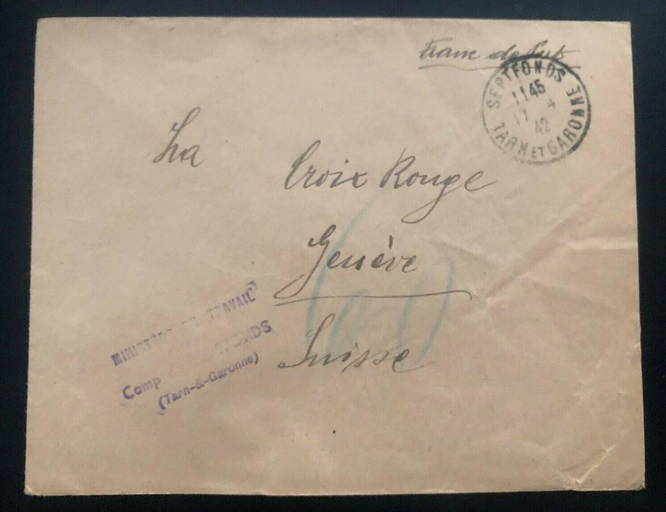 Franc de Port
SEPTFONDS
11 45
17 4
42
TARN ET GARONNE
La Croix Rouge
Genève
Suisse
MINISTÈRE DU TRAVAIL
Camp SEPTFONDS
(Tarn-&-Garonne)